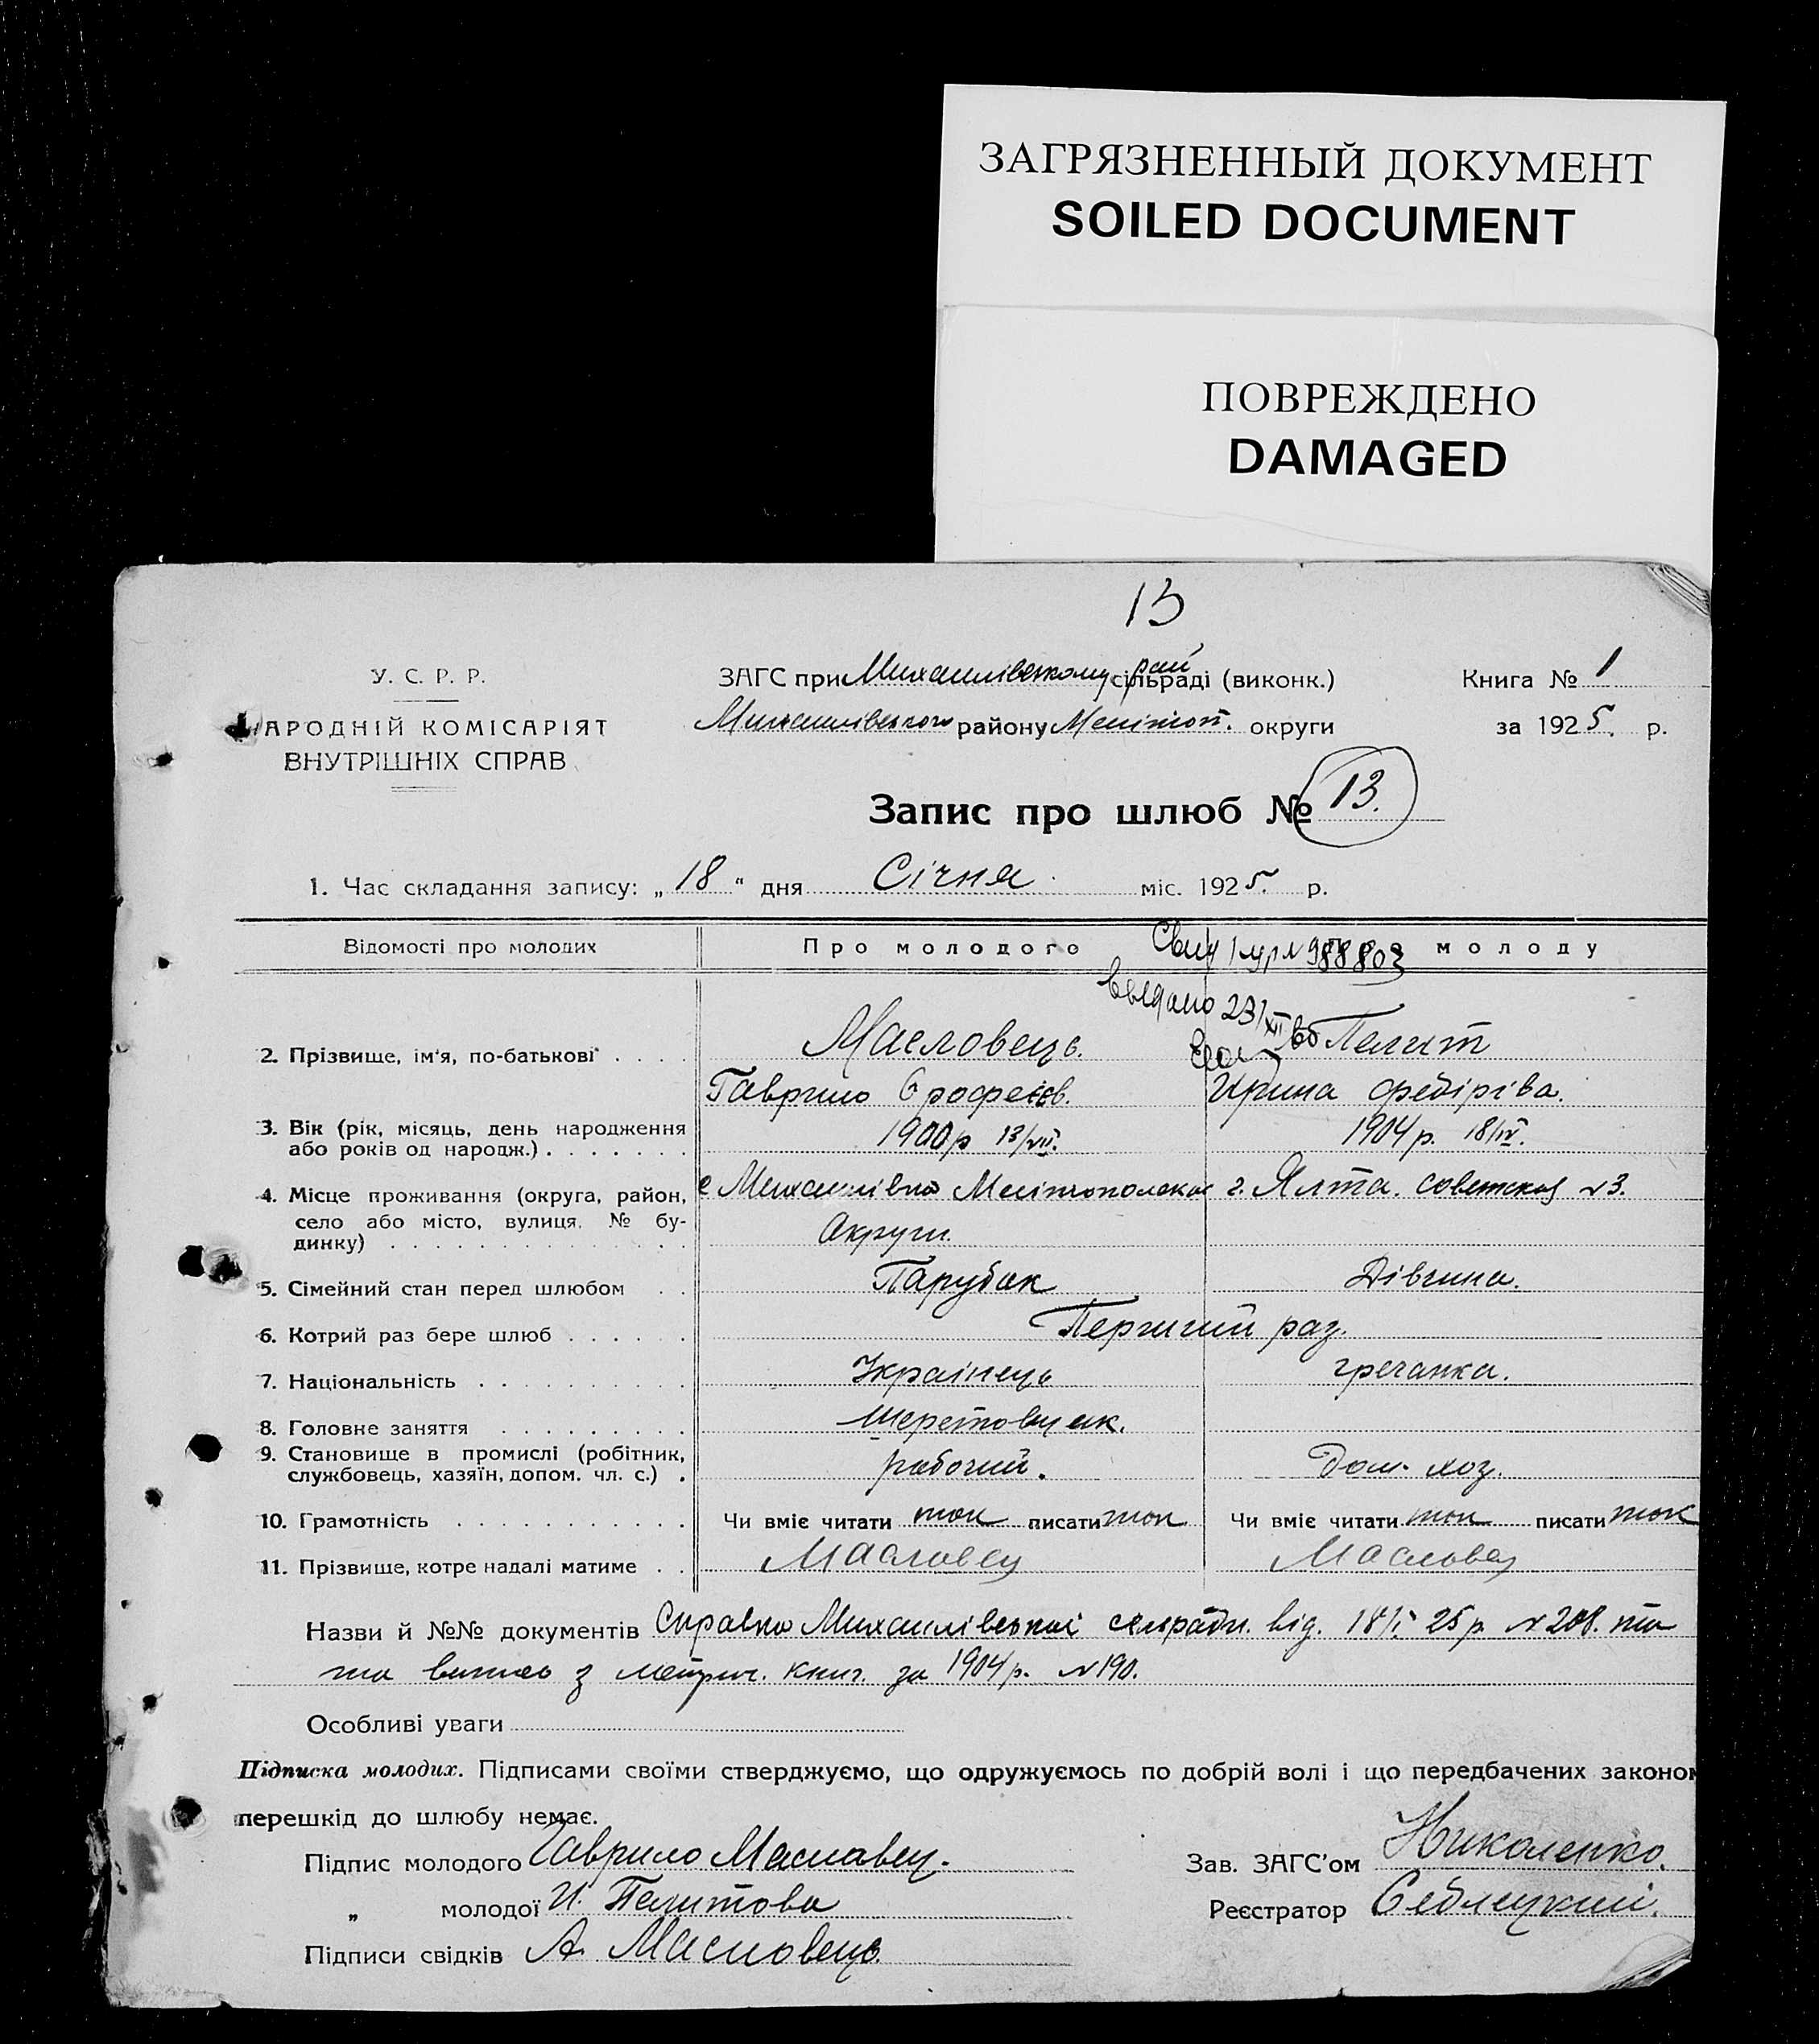 ЗАГРЯЗНЕННЫЙ ДОКУМЕНТ
SOILED DOCUMENT
ПОВРЕЖДЕНО
DAMAGED
13
У. С. Р. Р.
НАРОДНІЙ КОМІСАРІЯТ
ВНУТРІШНІХ СПРАВ
ЗАГС при Михайлівському рай сільраді (виконк.)
Михайлівського району Мелітоп. округи
Книга № 1
за 1925. р.
Запис про шлюб № 13.
1. Час складання запису: „18“ дня Січня міс. 1925. р.
Відомості про молодих Про молодого Про молоду
988803
2. Прізвище, ім'я, по-батькові Масловець. Пелит
Гаврило Ирина
3. Вік (рік, місяць, день народження
або років од народж.) 1900р 13/VII. 1904р. 18/IV.
4. Місце проживання (округа, район,
село або місто, вулиця, № будинку)
с Михайлівка Мелітопольская г. Ялта. Советская №3.
Округи.
5. Сімейний стан перед шлюбом Парубак Дівчина.
6. Котрий раз бере шлюб Перший раз.
7. Національність Українець гречанка.
8. Головне заняття
9. Становище в промислі (робітник,
службовець, хазяїн, допом. чл. с.) рабочий. Дом. хоз.
10. Грамотність Чи вміє читати так писати так Чи вміє читати так писати так
11. Прізвище, котре надалі матиме Масловец Масловец
Назви й №№ документів Справка Михайлівської сельради. від. 18/I 25р. №208. та
та випис з метрич. книг. за 1904р. №190.
Особливі уваги
Підписка молодих. Підписами своїми стверджуємо, що одружуємось по добрій волі і що передбачених законом
перешкід до шлюбу немає.
Підпис молодого Гаврило Масловец.
„ молодої И. Пелитова
Підписи свідків А. Масловець.
Зав. ЗАГС'ом Николенко.
Реєстратор